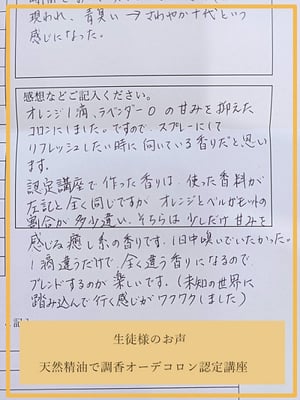 現われ、青臭い→さわやか十代という
感じになった。
感想などご記入ください。
オレンジ1滴、ラベンダー0の甘みを抑えた
コロンにしました。ですので、スプレーにして
リフレッシュしたい時に向いている香りだと思い
ます。
認定講座で作った香りは、使った香料が
左記と全く同じですが オレンジとベルガモットの
割合が多少違い、そちらは少しだけ甘みを
感じる癒し系の香りです。1日中嗅いでいたかった。
1滴違うだけで、全く違う香りになるので
ブレンドするのが楽しいです。(未知の世界に
踏み込んで行く感じがワクワクしました)
生徒様のお声
天然精油で調香オーデコロン認定講座